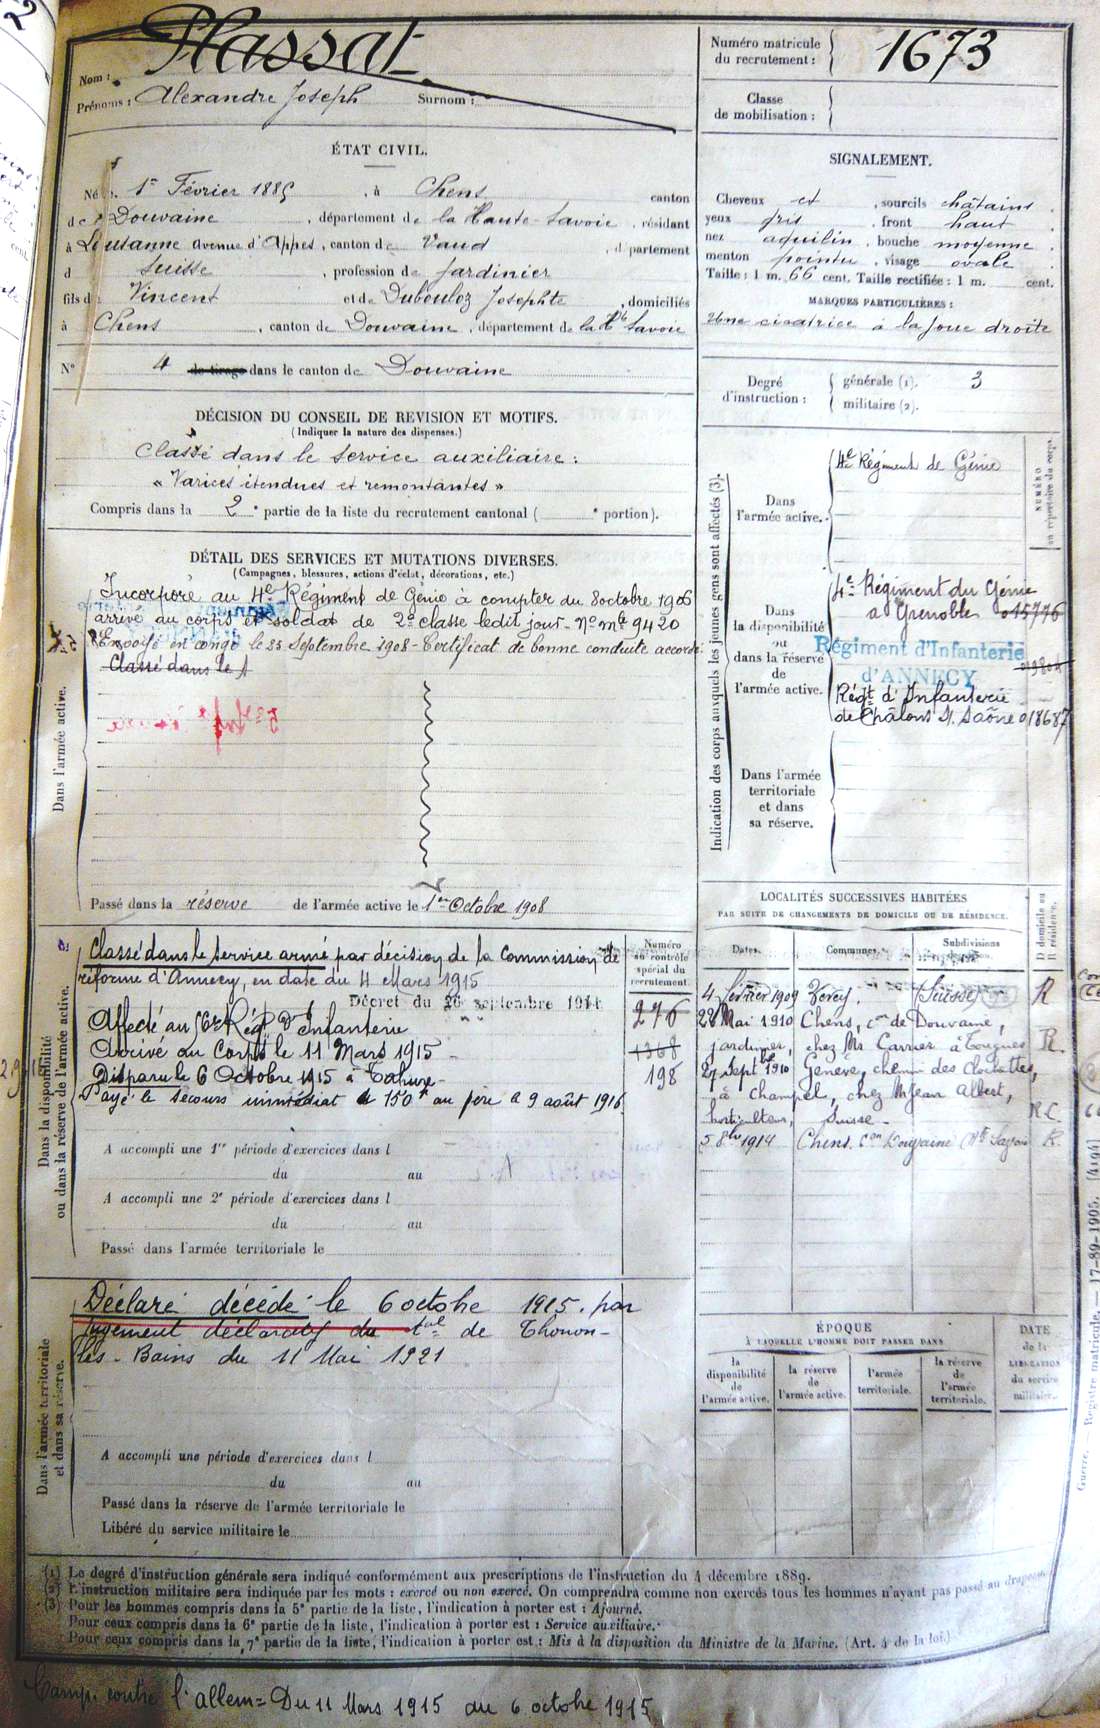 2
Nom : Plassat
Prénoms : Alexandre Joseph Surnom :
ÉTAT CIVIL.
Né le 1er Février 1885, à Chens canton
de Douvaine, département de la Haute-Savoie, résidant
à Lausanne avenue d'Apples, canton de Vaud département
d Suisse, profession de jardinier
fils de Vincent et de Dubouloz Josephte, domiciliés
à Chens, canton de Douvaine, département de la Hte Savoie
N° 4 de tirage dans le canton de Douvaine
DÉCISION DU CONSEIL DE REVISION ET MOTIFS.
(Indiquer la nature des dispenses.)
Classé dans le service auxiliaire :
« Varices étendues et remontantes »
Compris dans la 2e partie de la liste du recrutement cantonal ( e portion).
DÉTAIL DES SERVICES ET MUTATIONS DIVERSES.
(Campagnes, blessures, actions d'éclat, décorations, etc.)
Dans l'armée active.
Incorporé au 4e Régiment de Génie à compter du 8 octobre 1906
arrivé au corps et soldat de 2e classe ledit jour - No mle 9420
Envoyé en congé le 25 Septembre 1908 - Certificat de bonne conduite accordé
Classé dans le
Passé dans la réserve de l'armée active le 1er Octobre 1908
Dans la disponibilité
ou dans la réserve de l'armée active.
Classé dans le service armé par décision de la Commission de
réforme d'Annecy, en date du 4 Mars 1915
Décret du 26 septembre 1914
Affecté au 56e Régt d'Infanterie
Arrivé au Corps le 11 Mars 1915
Disparu le 6 Octobre 1915 à Tahure
Payé le secours immédiat de 150f au père le 9 août 1916
Numéro
au contrôle
spécial du
recrutement.
276
1368
198
A accompli une 1re période d'exercices dans l
du au
A accompli une 2e période d'exercices dans l
du au
Passé dans l'armée territoriale le
Dans l'armée territoriale
et dans sa réserve.
Déclaré décédé le 6 octobre 1915. par
jugement déclaratif du tal de Thonon-
les-Bains du 11 Mai 1921
A accompli une période d'exercices dans l
du au
Passé dans la réserve de l'armée territoriale le
Libéré du service militaire le
Numéro matricule
du recrutement : 1673
Classe
de mobilisation :
SIGNALEMENT.
Cheveux et, sourcils châtains.
yeux gris, front haut
nez aquilin, bouche moyenne.
menton pointu, visage ovale.
Taille : 1 m. 66 cent. Taille rectifiée : 1 m. cent.
MARQUES PARTICULIÈRES :
Une cicatrice à la joue droite
Degré
d'instruction :
générale (1). 3
militaire (2).
Indication des corps auxquels les jeunes gens sont affectés (3).
NUMÉRO
au répertoire du corps.
Dans
l'armée active.
4e Régiment de Génie
Dans
la disponibilité
ou
dans la réserve
de
l'armée active.
4e Régiment du Génie
à Grenoble 015776
Régiment d'Infanterie
d'ANNECY
Régt d'Infanterie
de Châlons s/. Saône 018687
Dans l'armée
territoriale
et dans
sa réserve.
LOCALITÉS SUCCESSIVES HABITÉES
PAR SUITE DE CHANGEMENTS DE DOMICILE OU DE RÉSIDENCE.
Dates. Communes. Subdivisions
D domicile ou
R résidence.
4 février 1909 Vevey. Suisse R
28 Mai 1910 Chens, con de Douvaine,
jardinier, chez Mr Carrier à Tougues R.
27 septbre 1910 Genève, chemin des Clochettes,
à Champel, chez M. Jean Albert,
horticulteur, Suisse. R
5 8bre 1914 Chens. Con Douvaine (Hte Savoie R.
ÉPOQUE
À LAQUELLE L'HOMME DOIT PASSER DANS
la
disponibilité
de
l'armée active.
la réserve
de
l'armée active.
l'armée
territoriale.
la réserve
de
l'armée
territoriale.
DATE
de la
LIBÉRATION
du service
militaire.
Guerre. — Registre matricule. — 17-89-1905. [4194]
(1) Le degré d'instruction générale sera indiqué conformément aux prescriptions de l'instruction du 4 décembre 1889.
(2) L'instruction militaire sera indiquée par les mots : exercé ou non exercé. On comprendra comme non exercés tous les hommes n'ayant pas passé au drapeau.
(3) Pour les hommes compris dans la 5e partie de la liste, l'indication à porter est : Ajourné.
Pour ceux compris dans la 6e partie de la liste, l'indication à porter est : Service auxiliaire.
Pour ceux compris dans la 7e partie de la liste, l'indication à porter est : Mis à la disposition du Ministre de la Marine. (Art. 4 de la loi.)
Camp. contre l'allem = Du 11 Mars 1915 au 6 octobre 1915